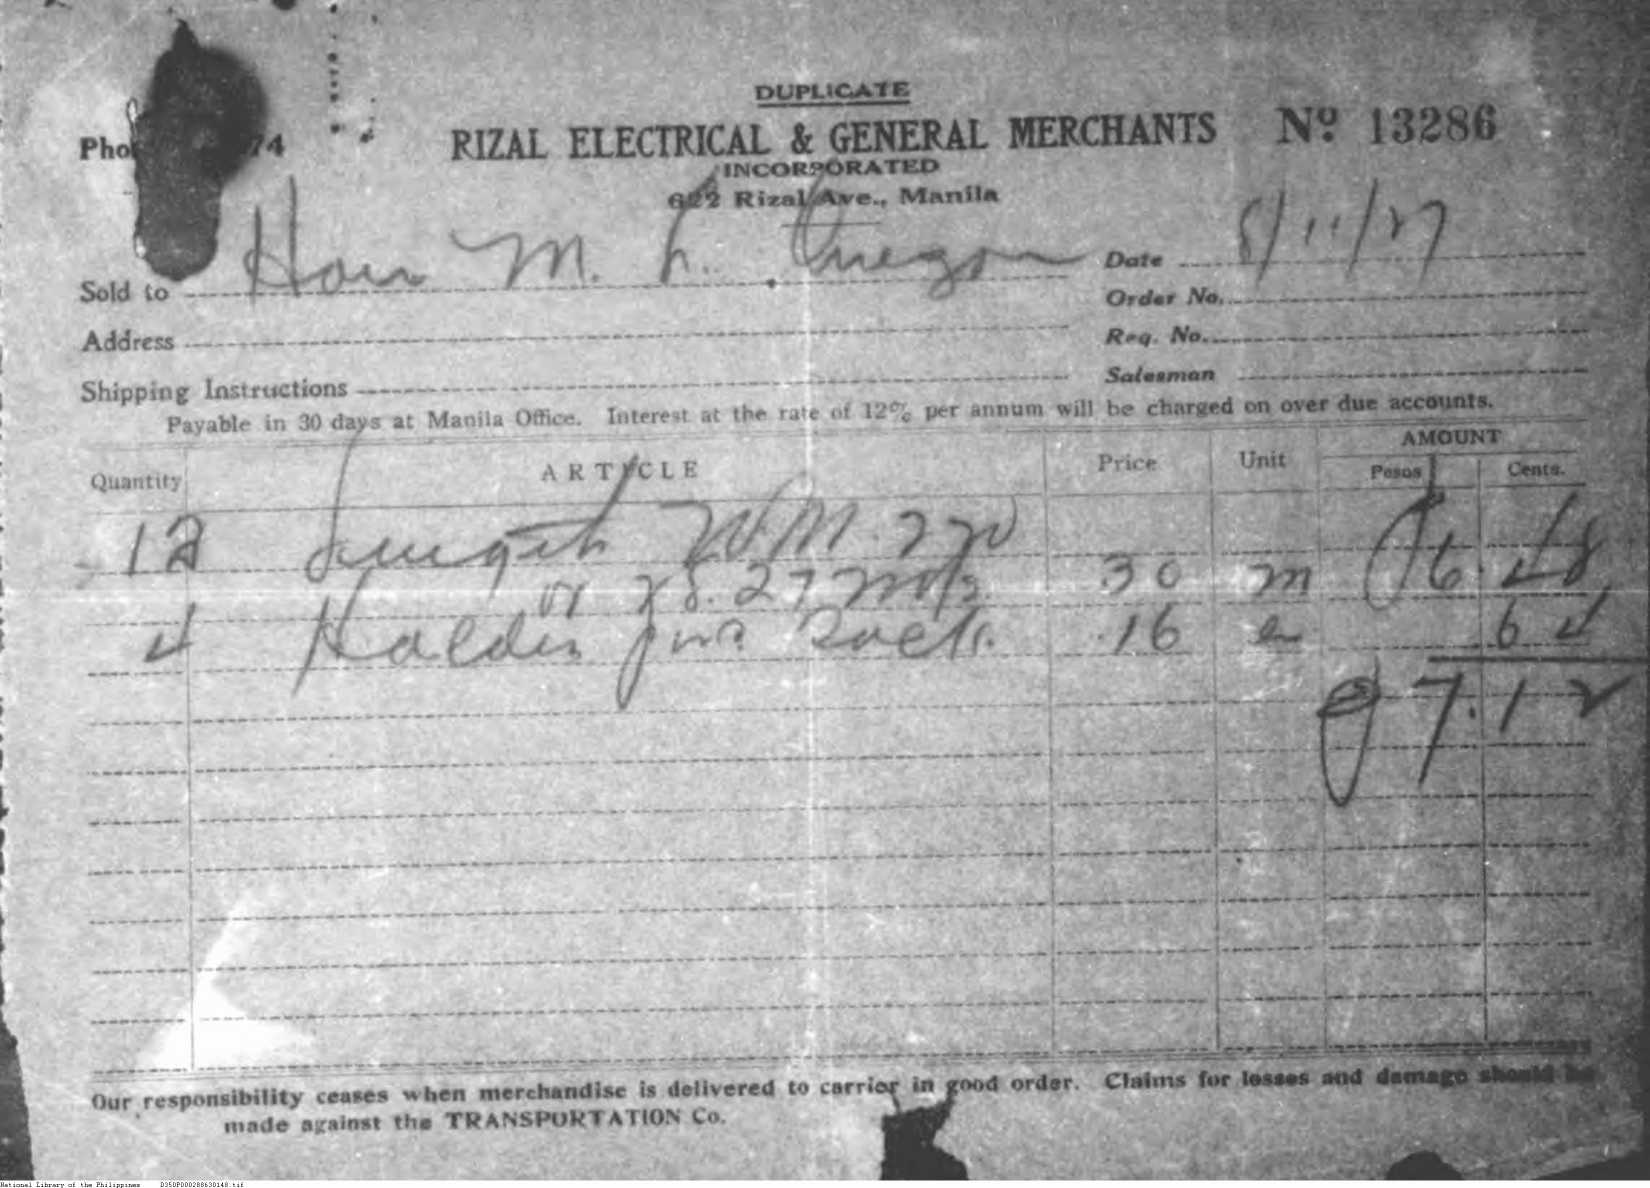 DUPLICATE
74
RIZAL ELECTRICAL & GENERAL MERCHANTS Nº 13286
INCORPORATED
622 Rizal Ave., Manila
Sold to Hon M. L. Quezon Date 8/11/27
Order No.
Address Req. No.
Shipping Instructions Salesman
Payable in 30 days at Manila Office. Interest at the rate of 12% per annum will be charged on over due accounts.
Quantity ARTICLE Price Unit AMOUNT
Pesos Cents.
12 W.M. 270
or 28.27 30 m ₱6.48
4 Holder for 16 e 64
₱7.12
Our responsibility ceases when merchandise is delivered to carrier in good order. Claims for losses and damage should be
made against the TRANSPORTATION Co.
National Library of the Philippines D350P000288630148.tif